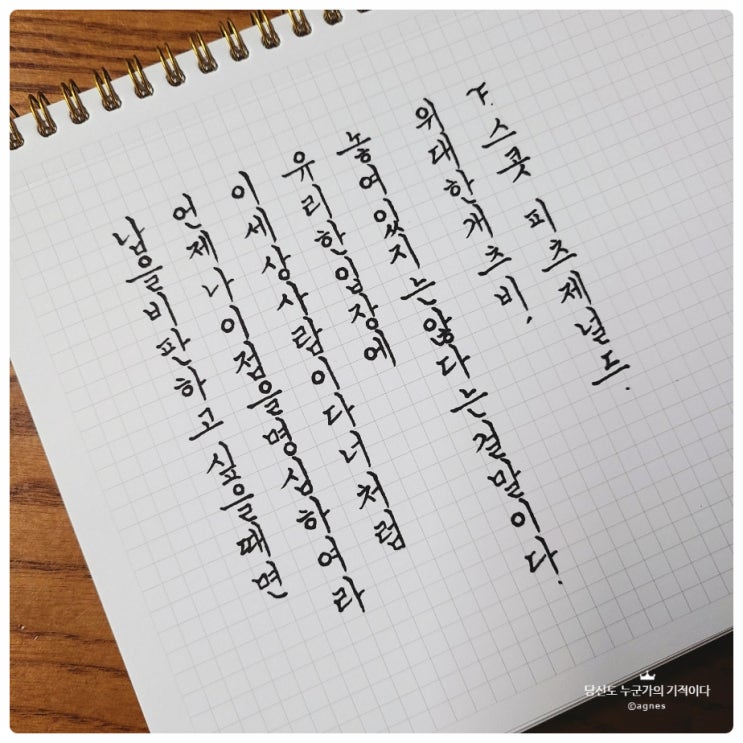 남을비판하고 싶을때면
언제나이점을명심하여라
이세상사람이다너처럼
유리한입장에
놓여있지는않다는걸말이다.
위대한개츠비,
F.스콧 피츠제널드.
당신도 누군가의 기적이다
©agnes